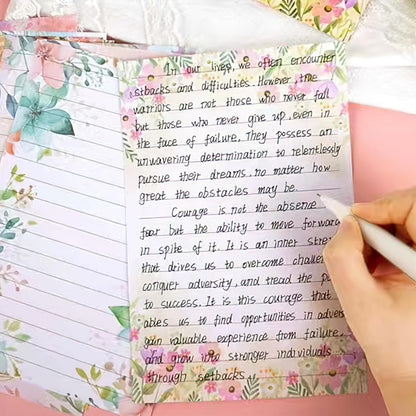 In our lives, we often encounter
setbacks and difficulties. However, true
warriors are not those who never fall
but those who never give up, even in
the face of failure. They possess an
unwavering determination to relentlessly
pursue their dreams, no matter how
great the obstacles may be.
Courage is not the absence
fear but the ability to move forward
in spite of it. It is an inner stren
that drives us to overcome challen
conquer adversity, and tread the pa
to success. It is this courage that
ables us to find opportunities in advers
gain valuable experience from failure,
and grow into stronger individuals
through setbacks